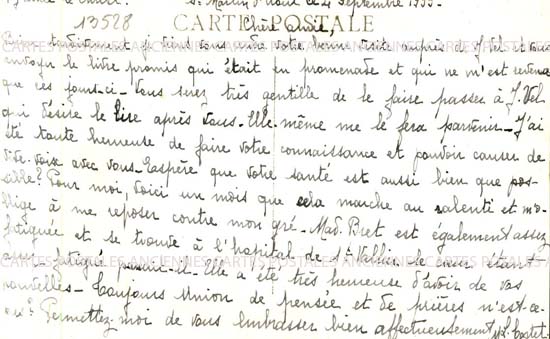 St Martin d'Août le 21 Septembre 1955.
13528
CARTE POSTALE
Chère amie,
Bien tardivement je viens vous rendre votre bonne visite auprès de J. Vel et vous
envoyer le livre promis qui était en promenade et qui ne m'est revenu
que ces jours-ci - Vous serez très gentille de le faire passer à J. Vel
qui désire le lire après vous - Elle-même me le fera parvenir - J'ai
été toute heureuse de faire votre connaissance et pouvoir causer de
vive-voix avec vous - J'espère que votre santé est aussi bien que pos-
sible? Pour moi, voici un mois que cela marche au ralenti et m'o-
blige à me reposer contre mon gré - Mad. Bret est également assez
fatiguée et se trouve à l'hôpital de St Vallier le cœur étant
assez fatigué paraît-il - Elle a été très heureuse d'avoir de vos
nouvelles - Toujours union de pensée et de prières n'est-ce-
pas? Permettez-moi de vous embrasser bien affectueusement
CARTES POSTALES ANCIENNES CARTES POSTALES ANCIENNES CARTES POSTALES